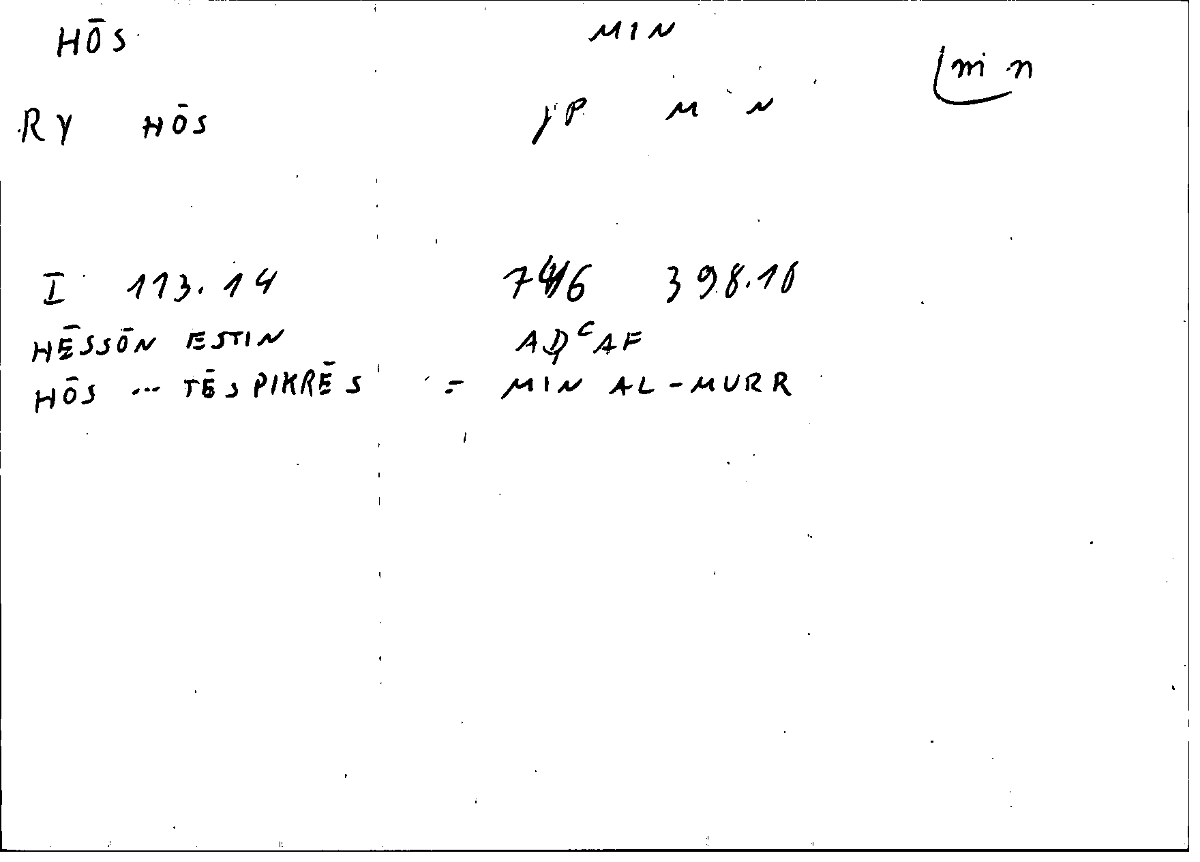 HŌS MIN
min
RY HŌS JP M N
I 113.14 7446 398.16
HĒSSŌN ESTIN AḌʿAF
HŌS ... TĒS PIKRĒS = MIN AL-MURR